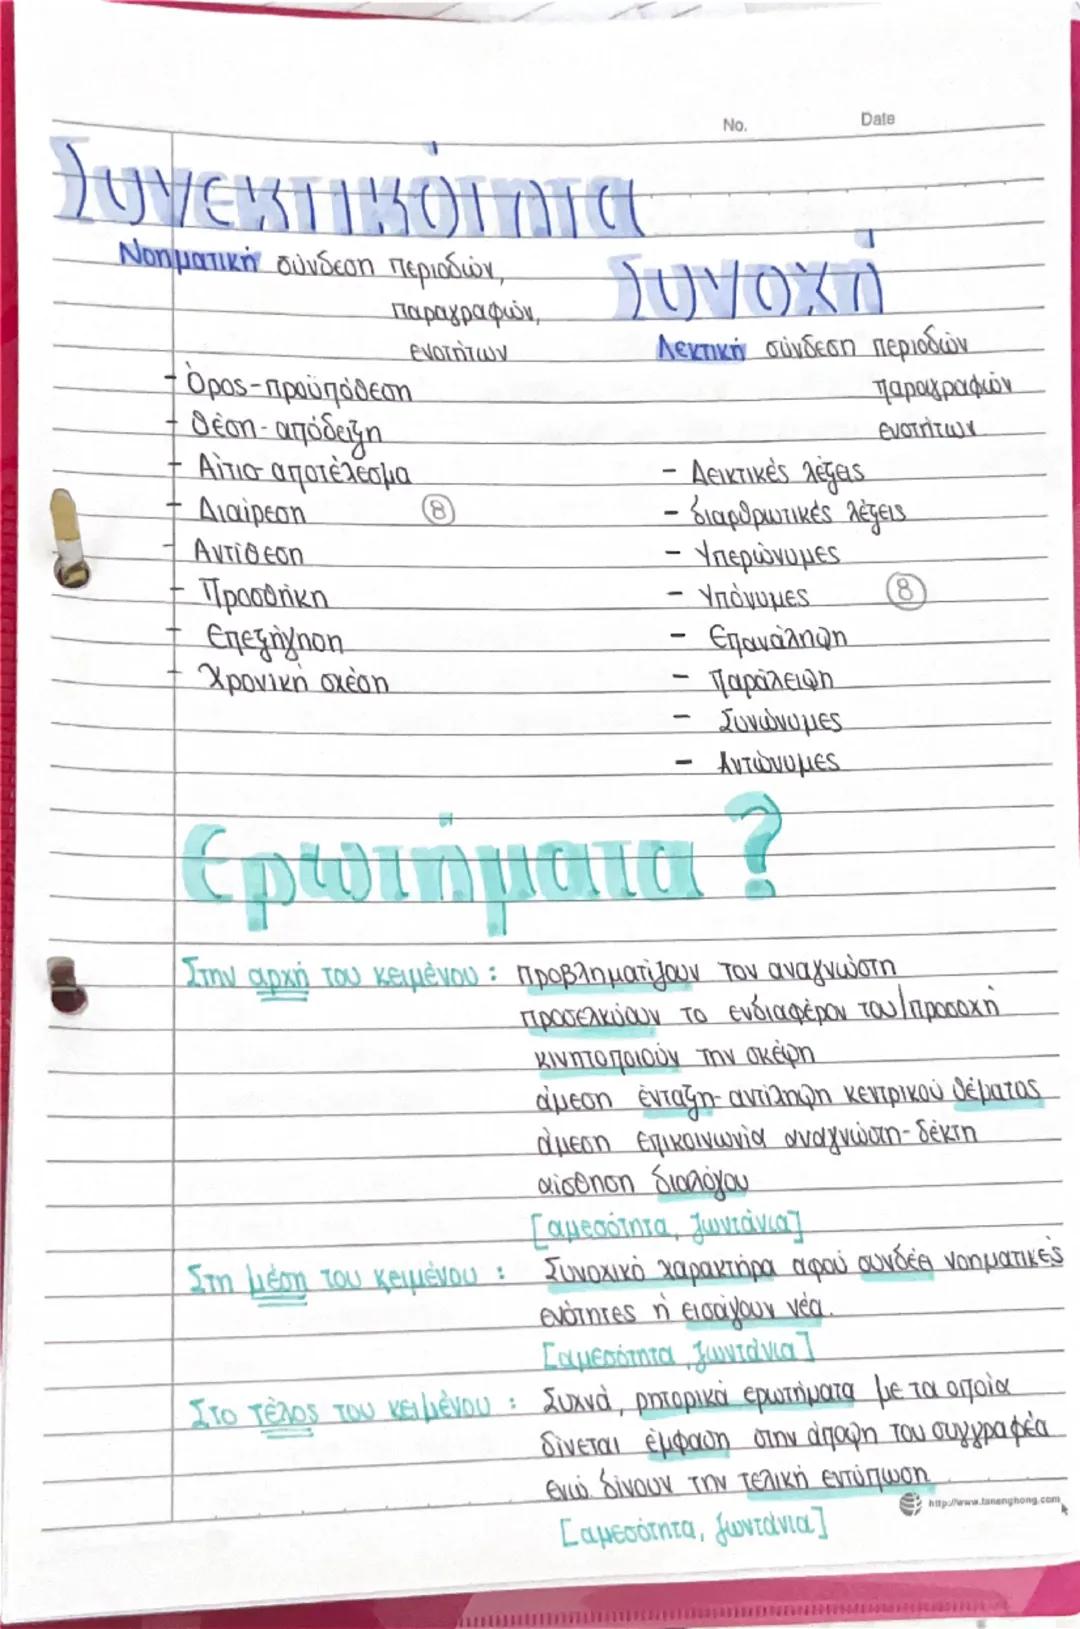 No. Date
Συνεκτικότητα
Νοηματική σύνδεση περιοδιών,
παραγραφών,
ενοτήτων
- Όρος-προϋπόθεση
- Θέση-απόδειξη
- Αίτιο-αποτέλεσμα
- Διαίρεση ⑧
- Αντίθεση
- Προσθήκη
- Επεξήγηση
- Χρονική σχέση
Συνοχή
Λεκτική σύνδεση περιοδιών
παραγραφών
ενοτήτων
- Δεικτικές λέξεις
- διαρθρωτικές λέξεις
- Υπερώνυμες
- Υπόνυμες ⑧
- Επανάληψη
- Παράλειψη
- Συνώνυμες
- Αντώνυμες
Ερωτήματα?
Στην αρχή του κειμένου : προβληματίζουν τον αναγνώστη
προσελκύουν το ενδιαφέρον του/προσοχή
κινητοποιούν την σκέψη
άμεση ένταξη-αντίληψη κεντρικού θέματος
άμεση επικοινωνία αναγνώστη-δέκτη
αίσθηση διαλόγου
[αμεσότητα, ζωντάνια]
Στη μέση του κειμένου : Συνοχικό χαρακτήρα αφού συνδέει νοηματικές
ενότητες ή εισάγουν νέα.
[αμεσότητα, ζωντάνια]
Στο τέλος του κειμένου : Συχνά, ρητορικά ερωτήματα με τα οποία
δίνεται έμφαση στην άποψη του συγγραφέα
ενώ δίνουν την τελική εντύπωση
[αμεσότητα, ζωντάνια]
http://www.tanenghong.com